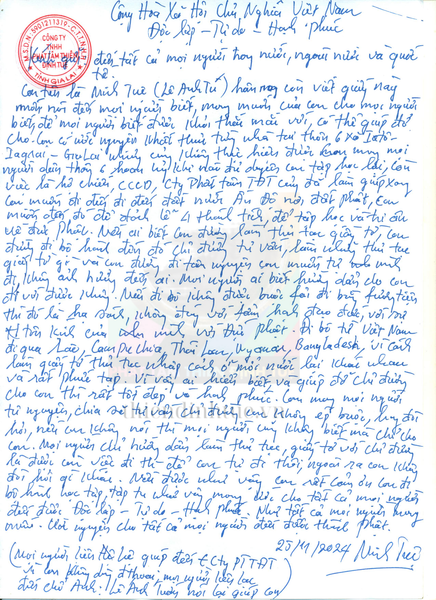 Cộng Hoà Xã Hội Chủ Nghĩa Việt Nam
Độc lập - Tự do - Hạnh phúc
M.S.D.N: 5901211319-C.T.T.N.H.H
CÔNG TY
TNHH
TỈNH GIA LAI
Kính gửi đến tất cả mọi người trong nước, ngoài nước và quốc
tế.
Con tên là Minh Tuệ (Lê Anh Tú) hôm nay con viết giấy này
muốn nói đến mọi người biết, mong muốn của con cho mọi người
biết, để mọi người biết được khỏi thắc mắc với, có thể giúp đỡ
cho. Con có ước nguyện khất thực từng nhà tại thôn 6 xã Iatô-
Iagrai - Gia Lai nhưng cũng không thực hiện được
mọi người dân thôn 6 hoan hỷ khi nào đủ duyên con tập học lại, còn
việc là hộ chiếu, CCCD, Cty Phát tâm TĐT cũng đã làm giúp xong
con muốn đi đến đi đến đất nước Ấn Độ nơi đất phật, con
muốn đến đó để đảnh lễ 4 thánh tích, để tập học và tri ân
về đức Phật. Nếu ai biết con đường làm thủ tục giấy tờ, con
đường đi bộ hành đến đó chỉ đường tư vấn, làm những thủ tục
giấy tờ gì với con được đi tâm nguyện con muốn tự bản mình
đi, không ảnh hưởng đến ai. Mọi người ai biết hướng dẫn cho con
đi với được không. Nếu đi bộ không được buộc phải đi bằng phương tiện
thì đó là
của mình với Đức phật. Đi bộ từ Việt Nam
đi qua Lào, Campuchia, Thái Lan, Myanmar, Bangladesh, vì cách
làm giấy tờ thủ tục nhập cảnh ở mỗi nước lại khác nhau
và rất phức tạp. Vì vậy ai hiểu biết và giúp đỡ chỉ đường
cho con thì rất tốt đẹp và hạnh phúc. Con mong mọi người
tự nguyện, chia sẻ tư vấn chỉ đường. Không ép buộc, hay đòi
hỏi, nếu con không nói thì mọi người cũng không biết mà chỉ cho
con. Mọi người chỉ hướng dẫn làm thủ tục, giấy tờ với chỉ đường
là được còn việc đi thì để con tự đi thôi, ngoài ra con không
đòi hỏi gì khác. Nếu được như vậy con rất cảm ơn con đi
bộ hành học tập, tập tu như vậy mong ước cho tất cả mọi người
đến được Độc lập - Tự do - Hạnh phúc. Như tất cả mọi người mong
muốn. Ước nguyện cho tất cả mọi người đến được thành Phật.
25/11/2024
Minh Tuệ
(Mọi người liên hệ giúp đến Cty PTTĐT
vì con không dùng điện thoại, mọi người liên lạc
đến chỗ Anh: Lê Anh Tuấn nói lại giúp con)